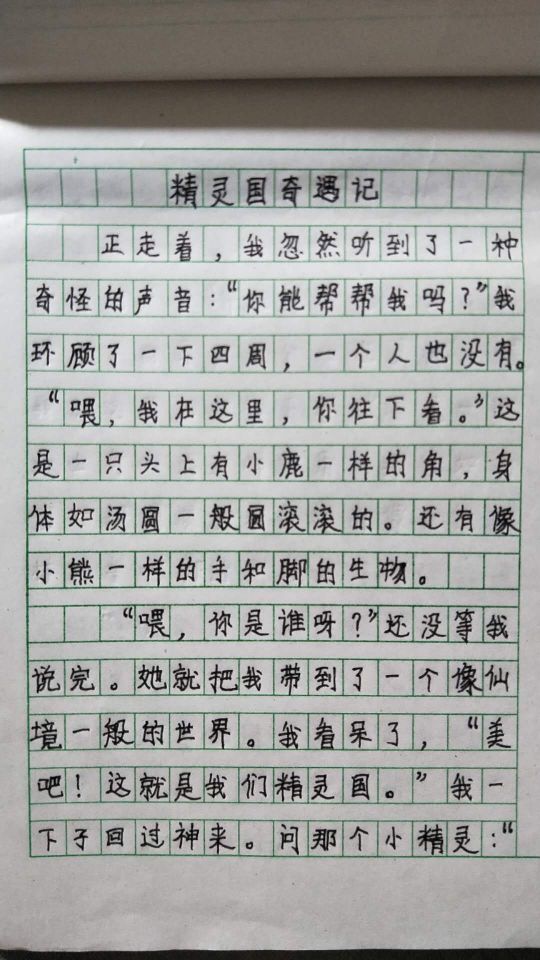 精灵国奇遇记
正走着，我忽然听到了一种
奇怪的声音：“你能帮帮我吗？”我
环顾了一下四周，一个人也没有。
“喂，我在这里，你往下看。”这
是一只头上有小鹿一样的角，身
体如汤圆一般圆滚滚的。还有像
小熊一样的手和脚的生物。
“喂，你是谁呀？”还没等我
说完。她就把我带到了一个像仙
境一般的世界。我看呆了，“美
吧！这就是我们精灵国。”我一
下子回过神来。问那个小精灵：“